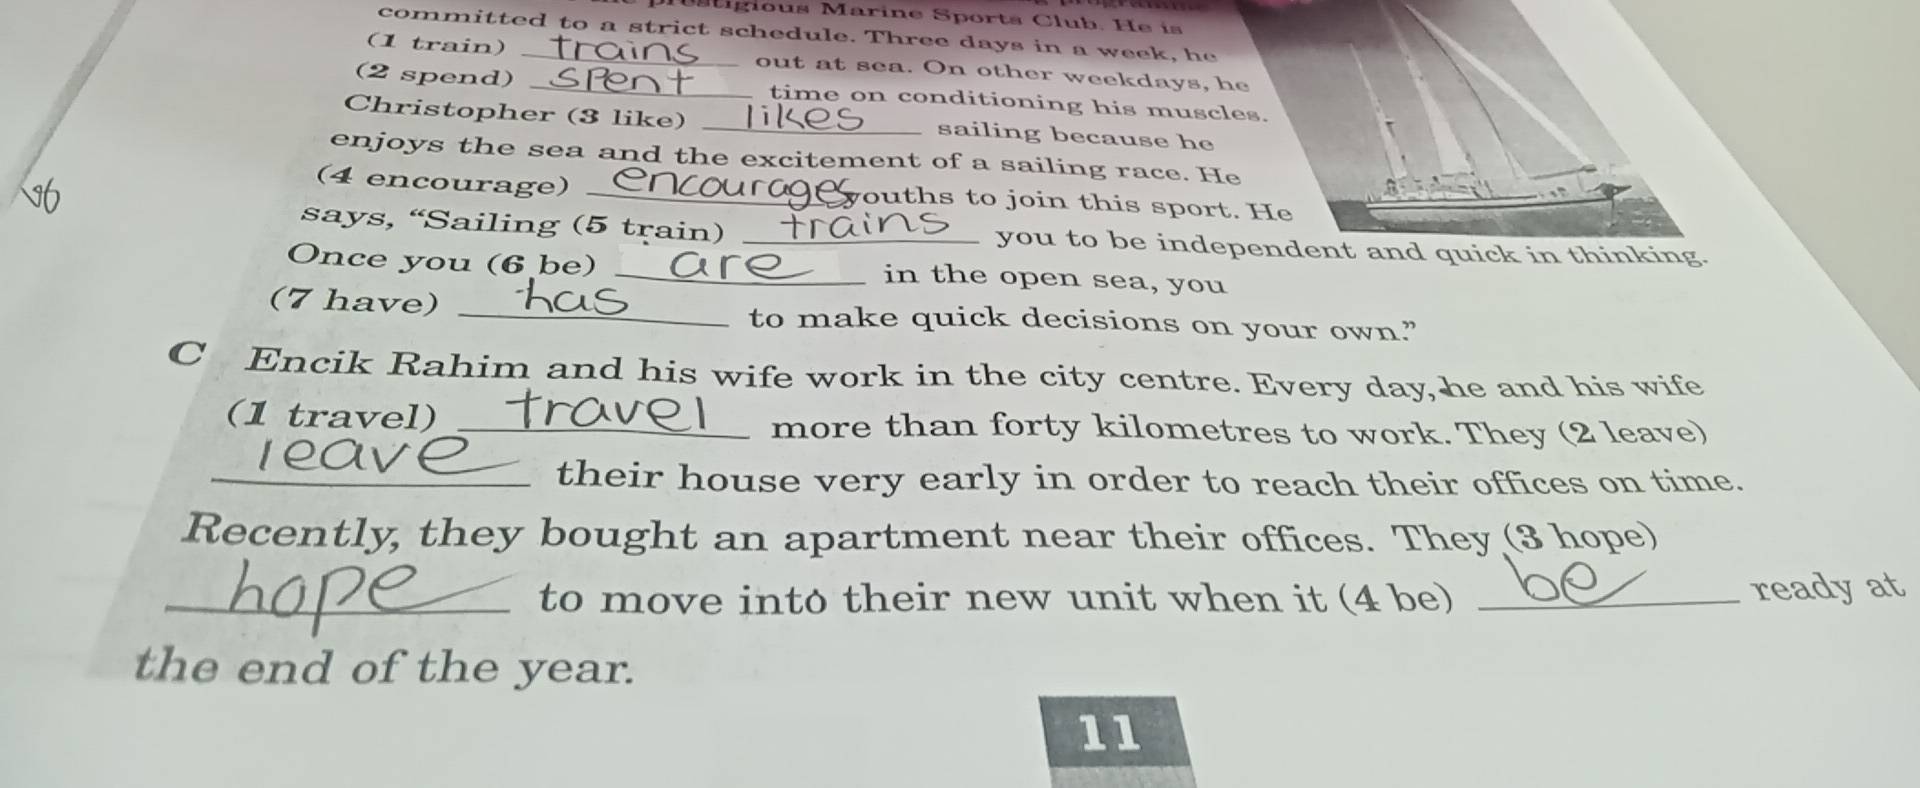 Marine Sports Club. He is
committed to a strict schedule. Three days in a week, he
(1 train) trains out at sea. On other weekdays, he
(2 spend) spent time on conditioning his muscles.
Christopher (3 like) likes sailing because he
enjoys the sea and the excitement of a sailing race. He
(4 encourage) encourages youths to join this sport. He
says, “Sailing (5 train) trains you to be independent and quick in thinking.
Once you (6 be) are in the open sea, you
(7 have) has to make quick decisions on your own.”
C Encik Rahim and his wife work in the city centre. Every day, he and his wife
(1 travel) travel more than forty kilometres to work. They (2 leave)
leave their house very early in order to reach their offices on time.
Recently, they bought an apartment near their offices. They (3 hope)
hope to move into their new unit when it (4 be) be ready at
the end of the year.
11